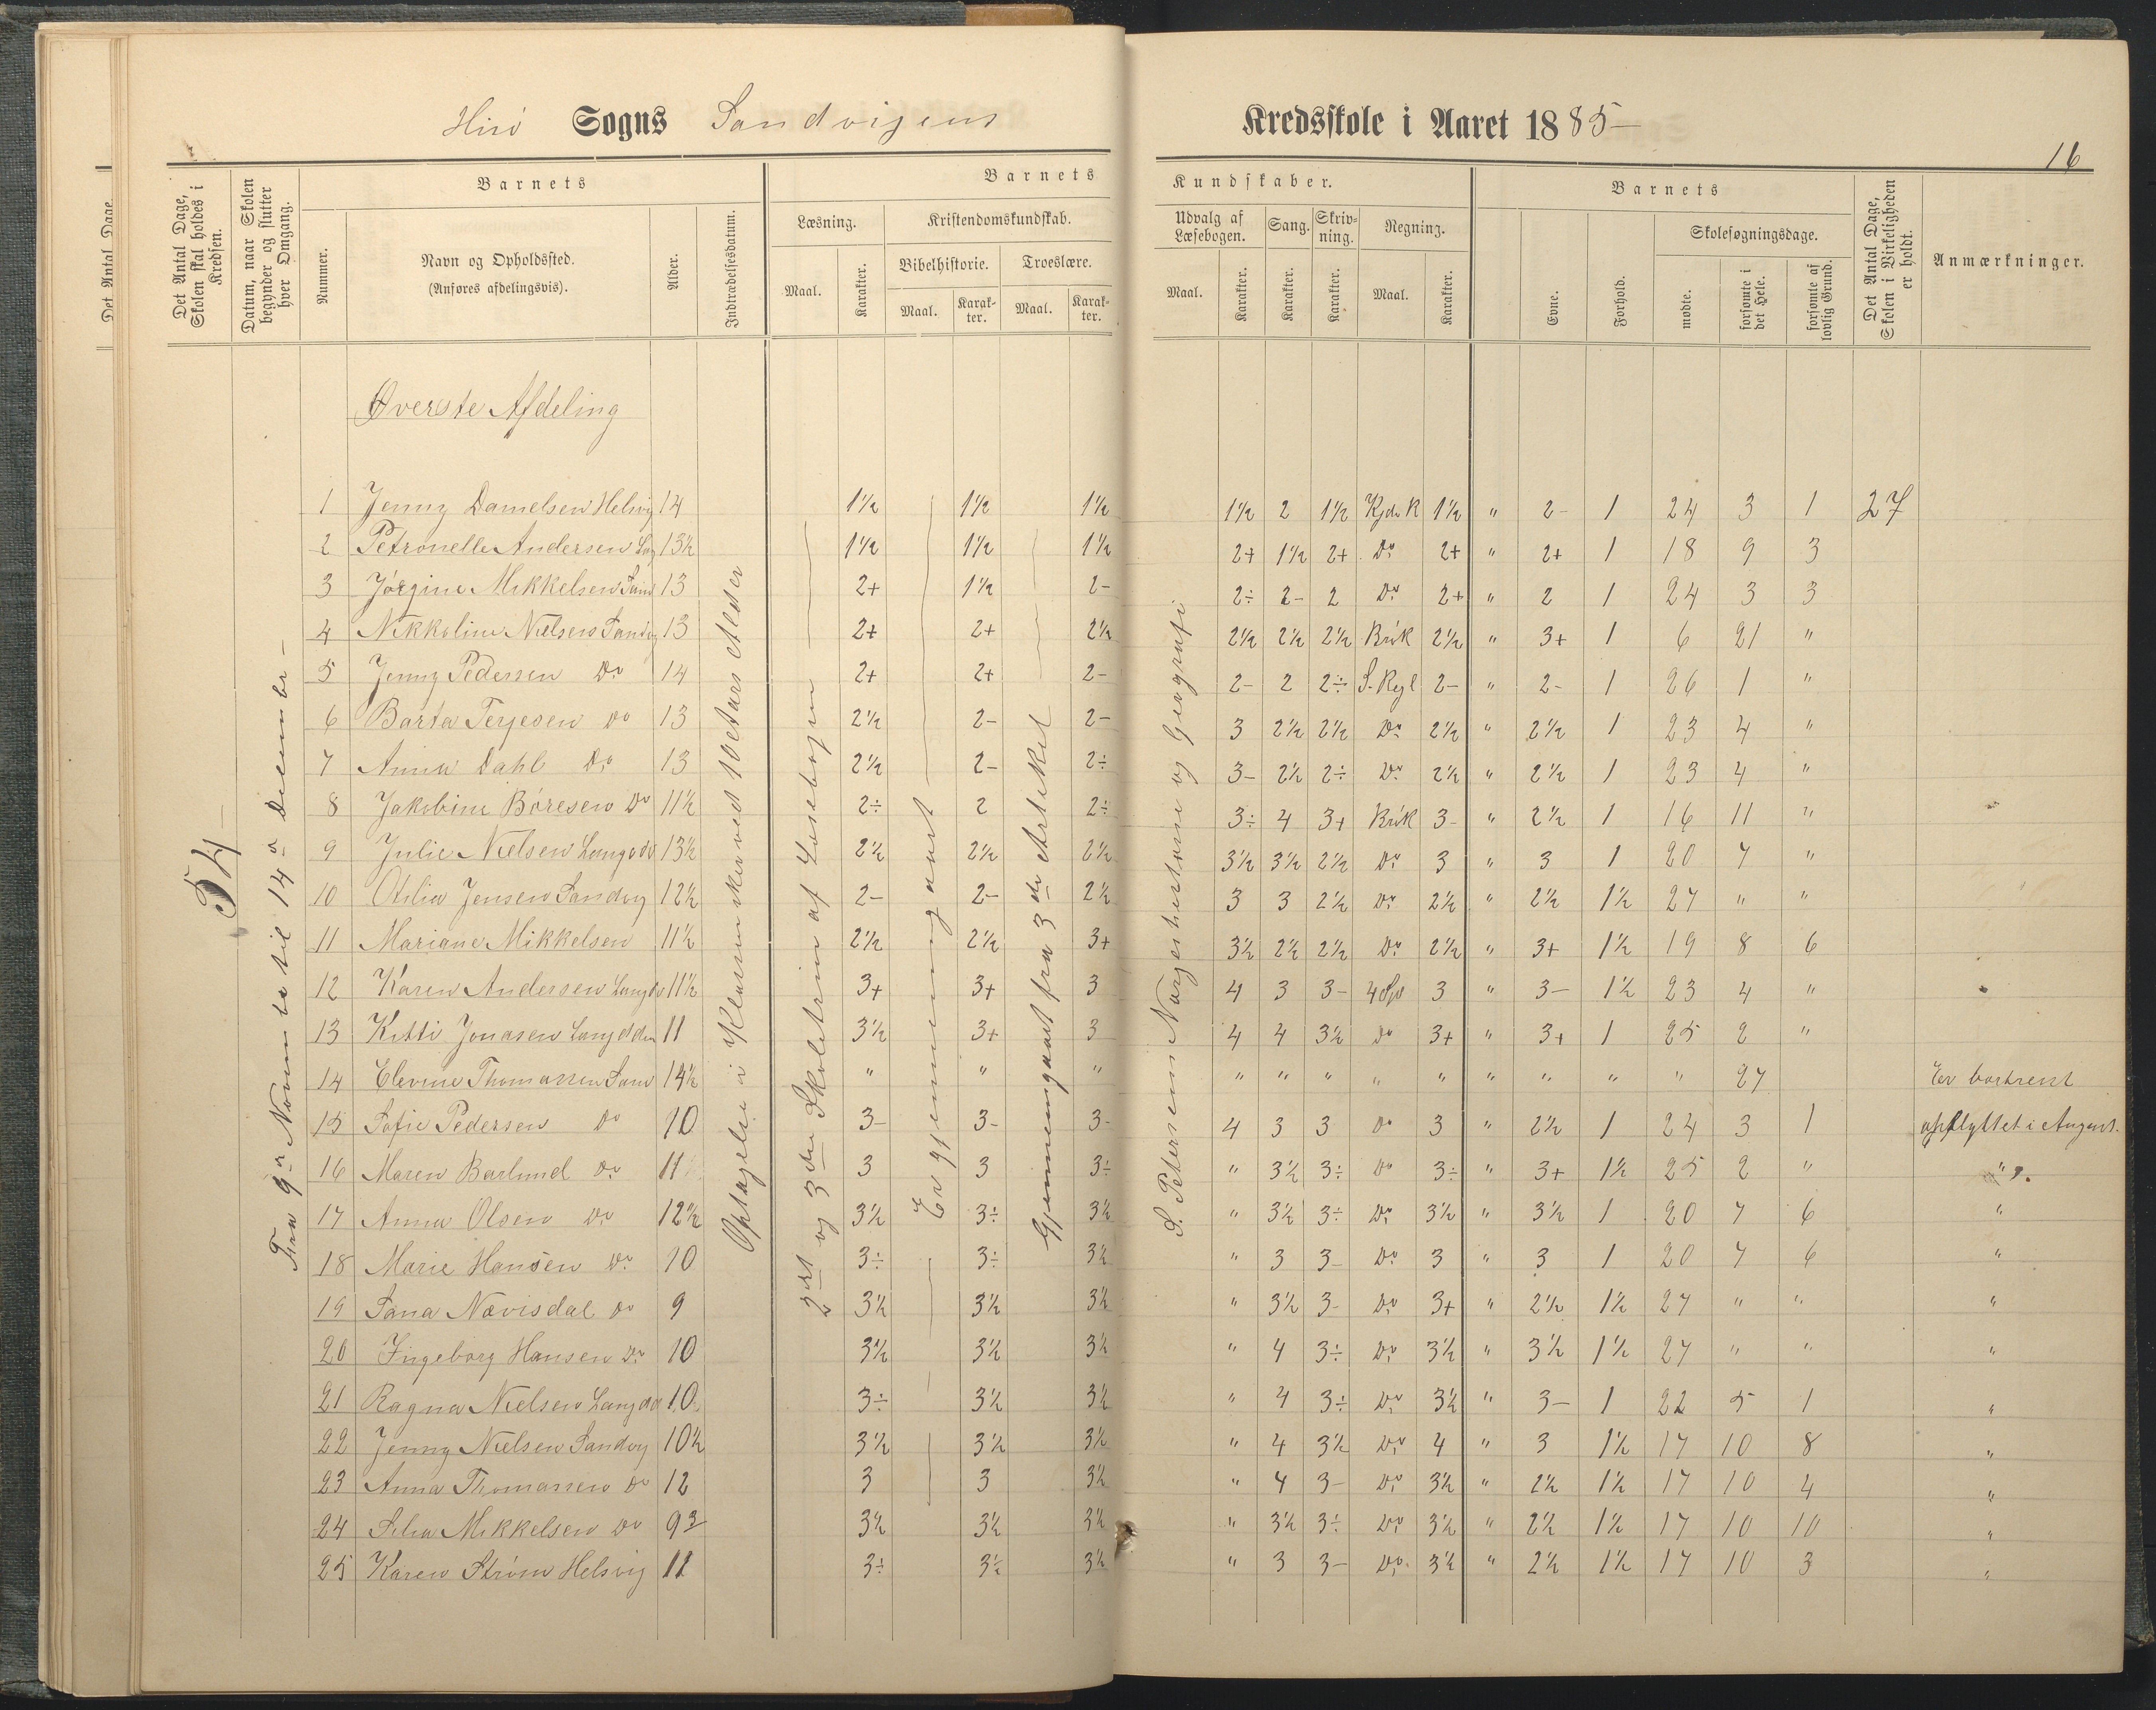 Hisø Sogns Sandvigens Kredsskole i Aaret 1885
16
Det Antal Dage, Skolen skal holdes i Kredsen.
Datum, naar Skolen begynder og slutter hver Omgang.
Barnets
Nummer.
Navn og Opholdssted.
(Anføres afdelingsvis).
Alder.
Indtrædelsesdatum.
Barnets Kundskaber.
Læsning.
Maal.
Karakter.
Kristendomskundskab.
Bibelhistorie.
Maal.
Karakter.
Troeslære.
Maal.
Karakter.
Udvalg af Læsebogen.
Maal.
Karakter.
Sang.
Karakter.
Skrivning.
Karakter.
Regning.
Maal.
Karakter.
Barnets
Evne.
Forhold.
Skolesøgningsdage.
mødte.
forsømte i det Hele.
forsømte af lovlig Grund.
Det Antal Dage, Skolen i Virkeligheden er holdt.
Anmærkninger.
Det Antal Dage
54
Fra 9de Novembe til 14de Decembr
Øverste Afdeling
2det og 3die Skoletrin af Læsebogen
Er gjennemgaaet
Gjennemgaaet fra 3die Artikel
S. Petersens Norgeshistorie og Geografi
1 Jenny Danielsen Helsvig 14 1½ 1½ 1½ 1½ 2 1½ 1½ " 2- 1 24 3 1 27
2 Petronelle Andersen 13½ 1½ 1½ 1½ 2+ 1½ 2+ Do 2+ " 2+ 1 18 9 3
3 Jørgine Mikkelsen Sand 13 2+ 1½ 2- 2÷ 2- 2 Do 2+ " 2 1 24 3 3
4 Nikkoline Nielsen Sandvg 13 2+ 2+ 2½ 2½ 2½ 2½ Brøk 2½ " 3+ 1 6 21 "
5 Jenny Pedersen Do 14 2+ 2+ 2- 2- 2 2÷ S. Regl 2- " 2- 1 26 1 "
6 Barta Terjesen Do 13 2½ 2- 2- 3 2½ 2½ Do 2½ " 2½ 1 23 4 "
7 Anna Dahl Do 13 2½ 2- 2÷ 3- 2½ 2÷ Do 2½ " 2½ 1 23 4 "
8 Jakobine Børesen Do 11½ 2÷ 2 2÷ 3÷ 4 3+ Brøk 3- " 2½ 1 16 11 "
9 Julie Nielsen 13½ 2½ 2½ 2½ 3½ 3½ 2½ Do 3 " 3 1 20 7 "
10 Otilia Jensen Sandvg 12½ 2- 2- 2½ 3 3 2½ Do 2½ " 2½ 1½ 27 " "
11 Mariane Mikkelsen 11½ 2½ 2½ 3+ 3½ 2½ 2½ Do 2½ " 3+ 1½ 19 8 6
12 Karen Andersen 11½ 3+ 3+ 3 4 3 3- 4 Sp 3 " 3- 1½ 23 4 "
13 Kitti Jonasen 11 3½ 3+ 3 4 4 3½ Do 3+ " 3+ 1 25 2 "
14 Elevine Thomassen Sand 14½ " " " " " " " " " " " " 27 Er bortreist
15 Sofie Pedersen Do 10 3- 3- 3- 4 3 3 Do 3 " 2½ 1 24 3 1 opflyttet i August.
16 Maren Barlund Do 11 3 3 3÷ " 3½ 3÷ Do 3÷ " 3+ 1½ 25 2 " "
17 Anna Olsen Do 12½ 3½ 3÷ 3½ " 3½ 3÷ Do 3½ " 3½ 1 20 7 6 "
18 Marie Hansen Do 10 3÷ 3÷ 3½ " 3 3- Do 3 " 3 1 20 7 6 "
19 Sana Nævisdal Do 9 3½ 3½ 3½ " 3½ 3- Do 3+ " 2½ 1½ 27 " " "
20 Ingeborg Hansen Do 10 3½ 3½ 3½ " 4 3÷ Do 3½ " 3½ 1½ 27 " " "
21 Ragna Nielsen 10 3÷ 3½ 3½ " 4 3÷ Do 3½ " 3- 1 22 5 1 "
22 Jenny Nielsen Sandvg 10½ 3½ 3½ 3½ " 4 3½ Do 4 " 3 1½ 17 10 8 "
23 Anna Thomassen Do 12 3 3 3½ " 4 3- Do 3½ " 2½ 1½ 17 10 4 "
24 Mikkelsen Do 9 3½ 3½ 3½ " 3½ 3÷ Do 3½ " 2½ 1½ 17 10 10 "
25 Karen Strøm Helsvig 11 3÷ 3½ 3½ " 3 3- Do 3½ " 2½ 1½ 17 10 3 "